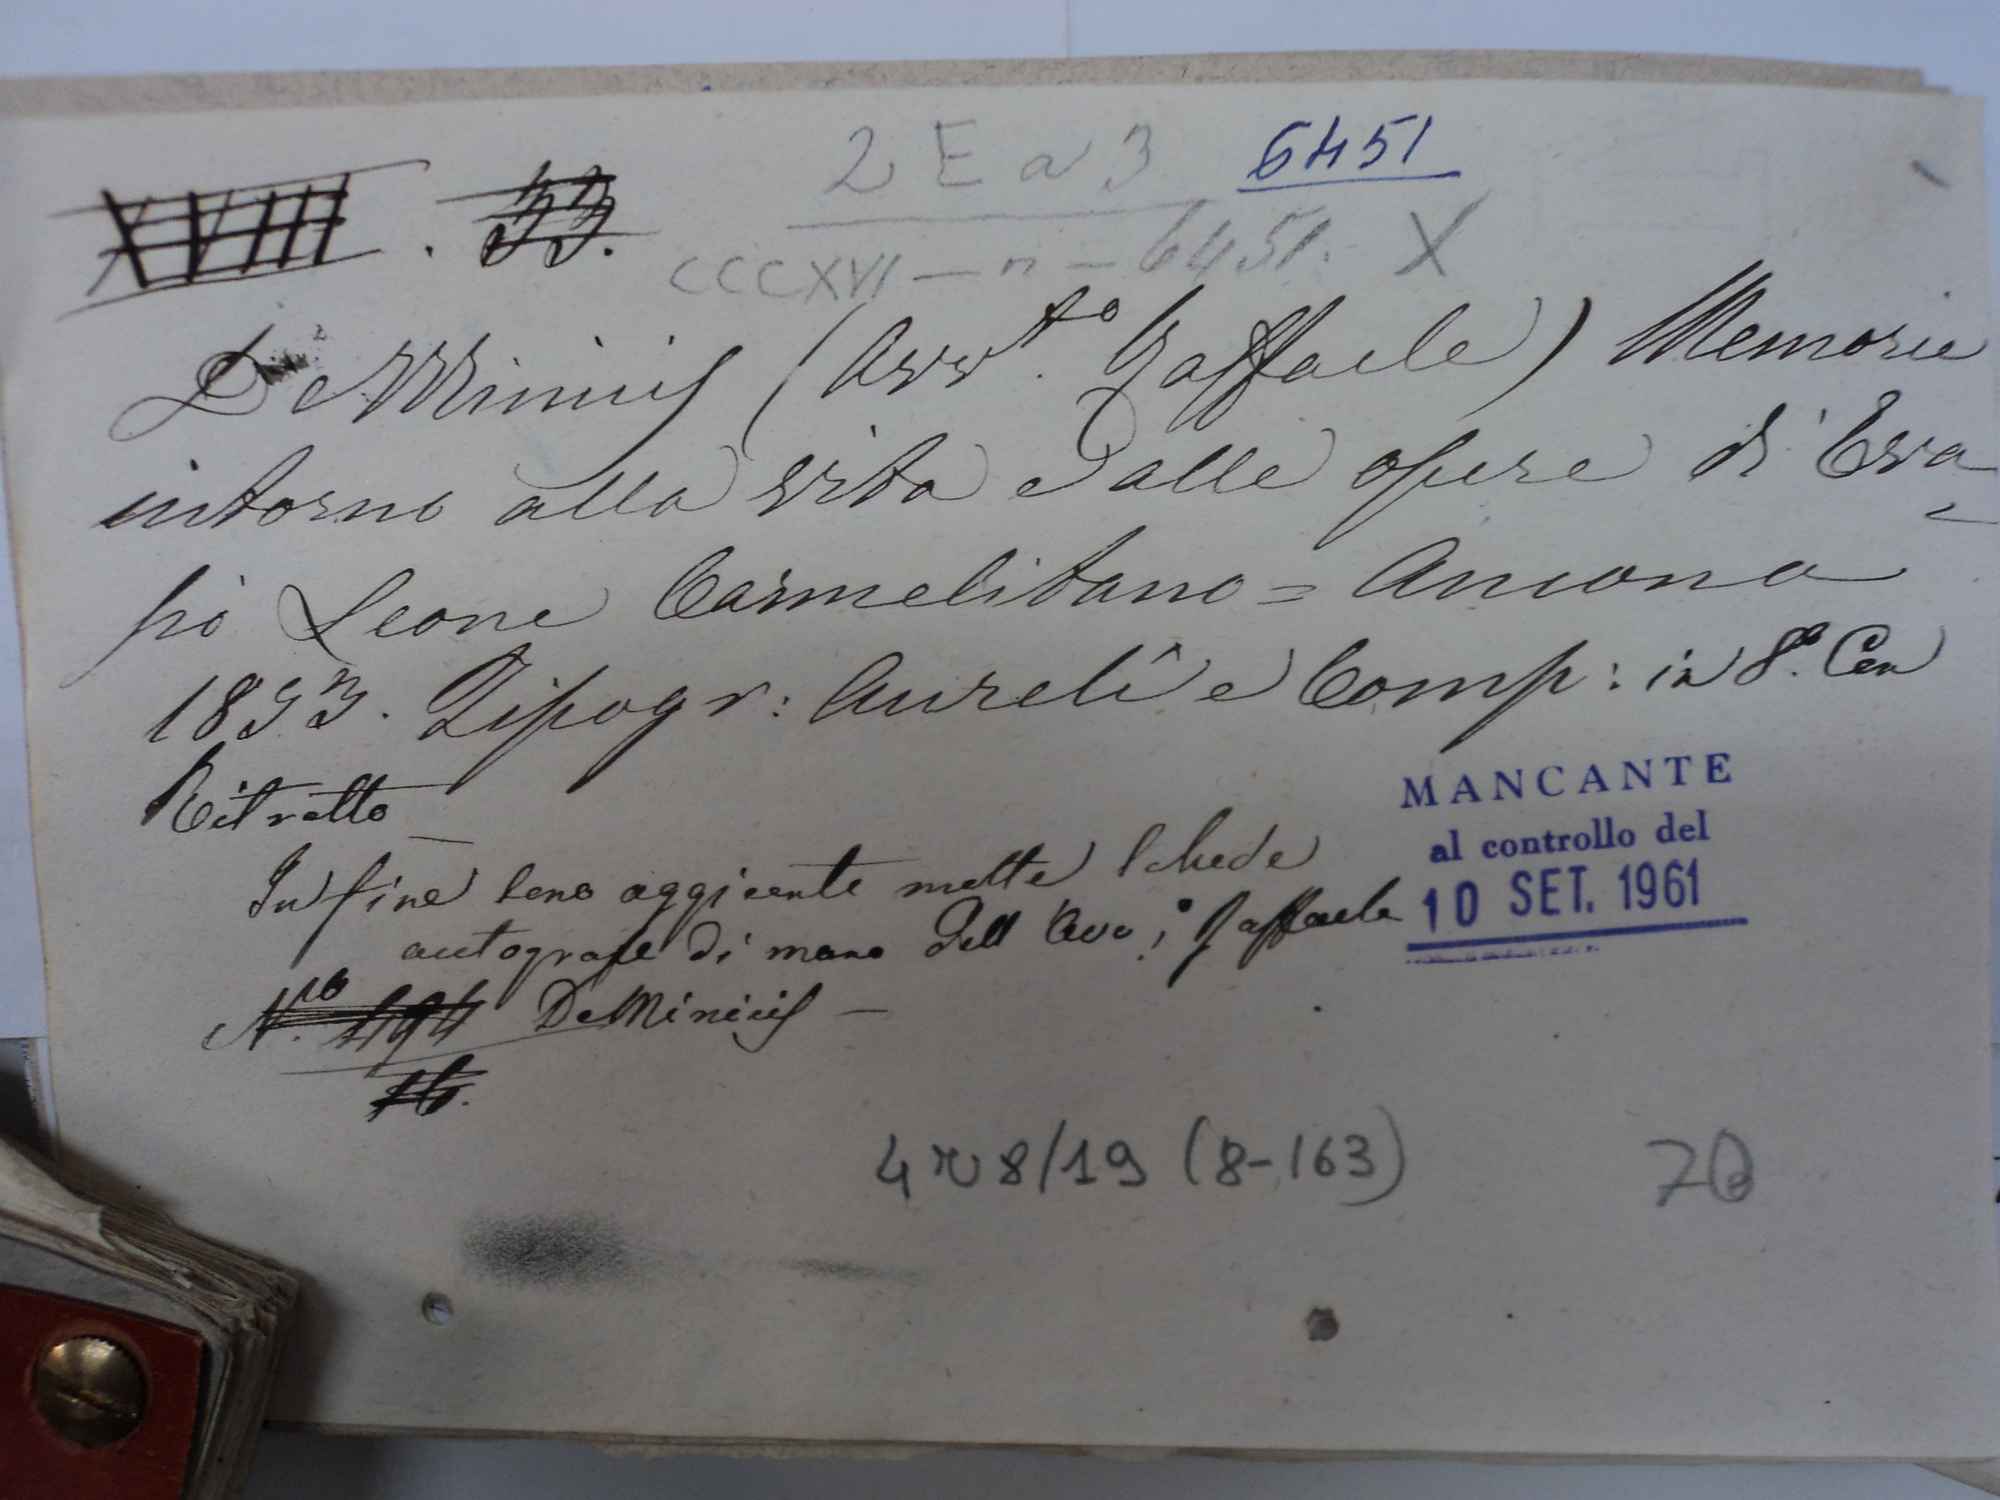 2 E a 3 6451
XVIII . 33.
CCCXVI — n — 6451. X
De Minicis (Avv.to Raffaele) Memorie
intorno alla vita e dalle opere di Eva-
sio Leone Carmelitano = Ancona
1833. Tipogr: Aurelî e Comp: in 8.o Con
Ritratto
MANCANTE
al controllo del
10 SET. 1961
In fine sono aggiente molte schede
autografe di mano dell' Avv.o Raffaele
De Minicis —
N.ro 494
16.
4 r 8/19 (8-163)